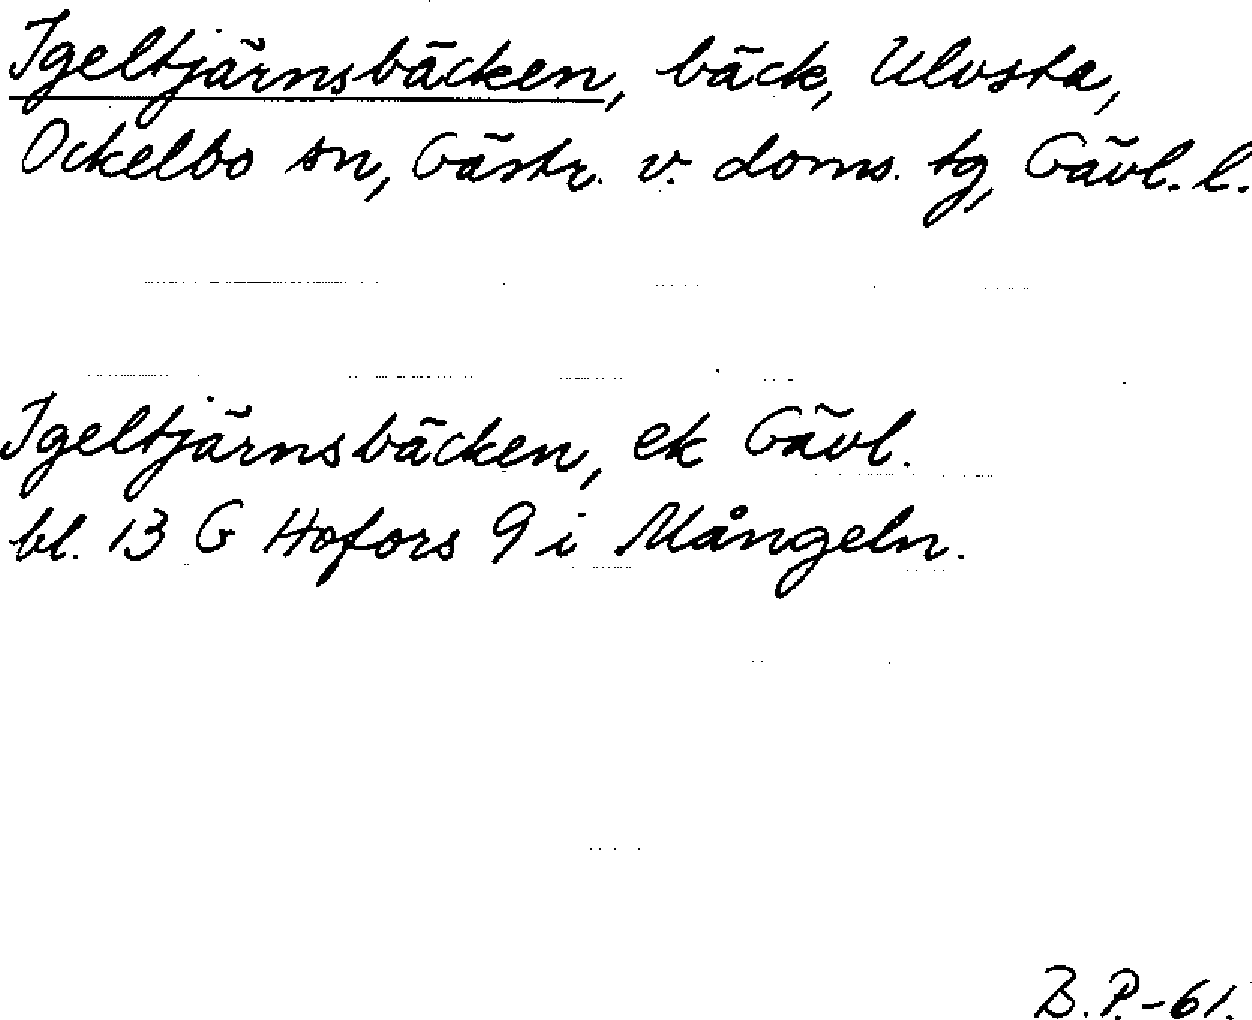 Igeltjärnsbäcken, bäck, Ulvsta,
Ockelbo sn, Gästr. v. doms. tg, Gävl. l.
Igeltjärnsbäcken, ek Gävl.
bl. 13 G Hofors 9 i Mångeln.
B.P.-61.